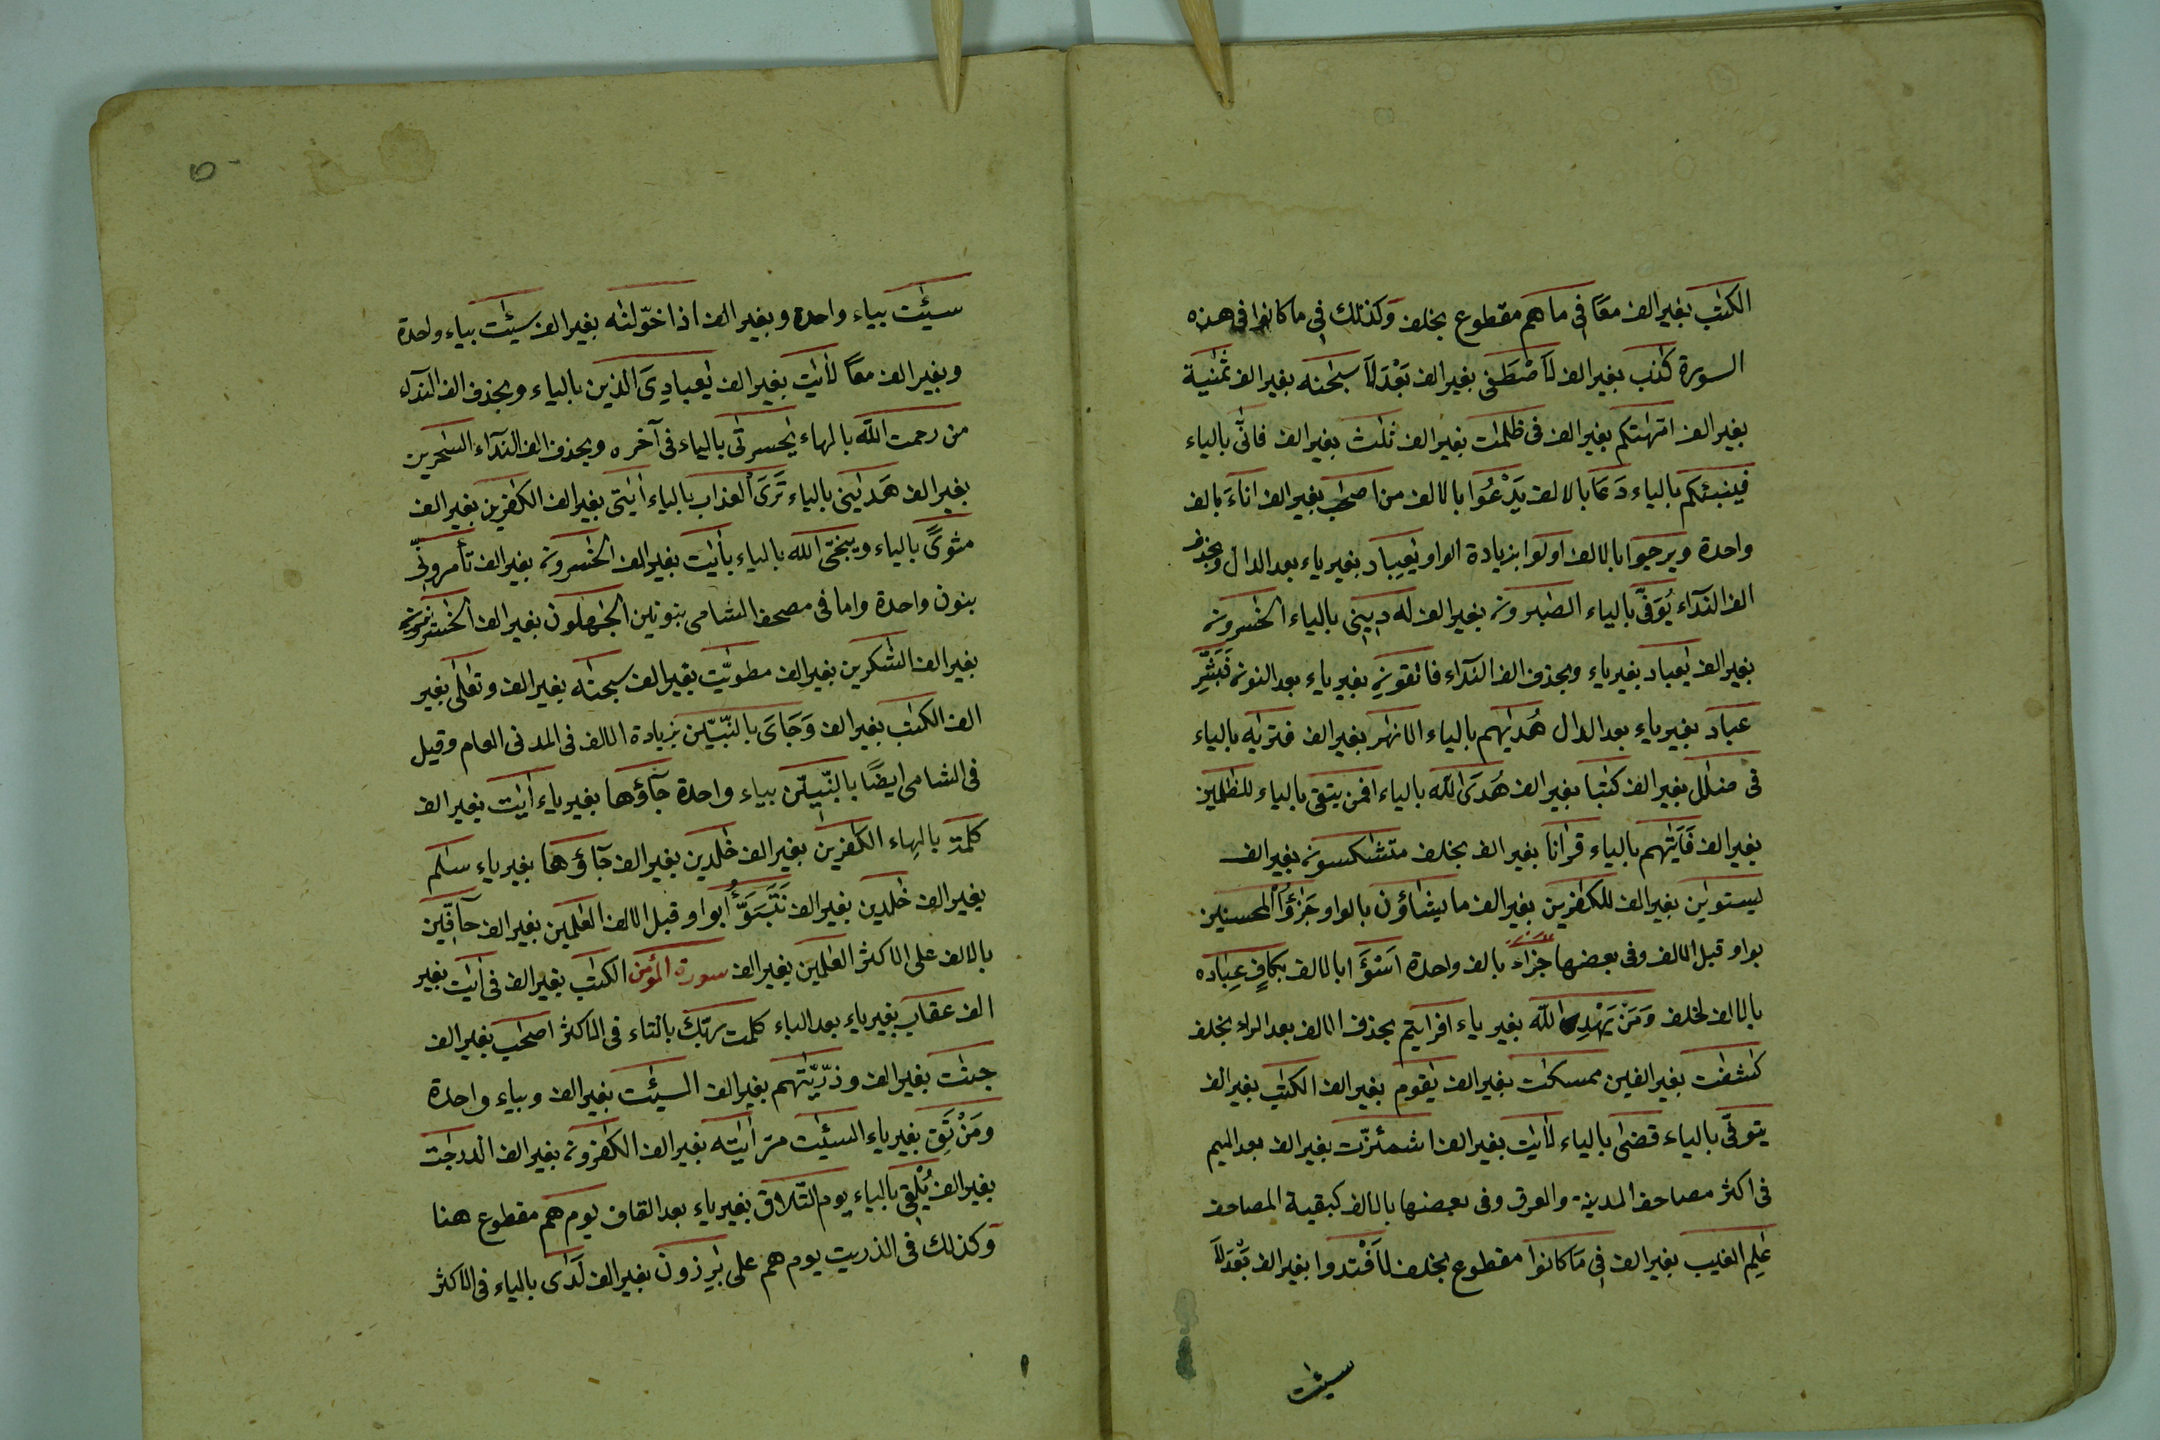 الكتٰب بغير الف معًا في ما هم مقطوع بخلف وكذلك في ما كانوا في هذه
السورة كٰذب بغير الف لاَصْطَفٰى بغير الف بَعْدَ لاَ سبحٰنه بغير الف ثمٰنية
بغير الف امّهٰتكم بغير الف فى ظلمٰت بغير الف ثلٰث بغير الف فانّٰى بالياء
فينبئكم بالياء دَعَا بالالف يَدْعُوا بالالف من اصحٰب بغير الف اناءَ بالف
واحدة ويرجوا بالالف اولوا بزيادة الواو يٰعِبادِ بغير ياء بعد الدال وبحذف
الف النّدآء يُوَفَّى بالياء الصّٰبرون بغير الف له دينى بالياء الخٰسرون
بغير الف يٰعباد بغير ياء وبحذف الف النّدآء فاتقونِ بغير ياء بعد النون فَبَشِّرْ
عبادِ بغير ياء بعد الدال هُدٰيهم بالياء الانهٰر بغير الف فترٰيه بالياء
فى ضلٰل بغير الف كتٰبا بغير الف هُدَى اللّٰه بالياء افمن يتقى بالياء للظّٰلمين
بغير الف فَاَتٰيهم بالياء قرٰانا بغير الف بخلف متشٰكسون بغير الف
ليستوٰين بغير الف للكٰفرين بغير الف ما يشاؤن بالواو جَزٰٓؤُا المحسنين
بواو قبل الالف وفى بعضها جزاء بالف واحدة اَسْوَاَ بالالف بكافٍ عِبٰاده
بالالف لخلف وَمَنْ يَهْدِ اللّٰه بغير ياء افرايتم بحذف الالف بعد الراء بخلف
كٰشفٰت بغير الفين ممسكٰت بغير الف يٰقوم بغير الف الكتٰب بغير الف
يتوفّى بالياء قضىٰ بالياء لاٰيٰت بغير الف اشمئزّت بغير الف بعد الميم
فى اكثر مصاحف المدينة والعرق وفى بعضها بالالف كبقية المصاحف
عٰلِم الغيب بغير الف فِى مَا كانوا مقطوع بخلف لاَفْتَدوا بغير الف بَعْدَ لاَ
سيئٰت
سيئٰت بياء واحدة وبغير الف اذا خوّلنٰه بغير الف سيئٰت بياء واحدة
وبغير الف معًا لاٰيٰت بغير الف يٰعبادِىَ الذين بالياء وبحذف الف النّدآء
من رحمت اللّٰه بالهاء يٰحسرتٰى بالياء فى آخره وبحذف الف النّدآء السّٰخرين
بغير الف هَدٰينى بالياء تَرَى العذاب بالياء اٰيٰتى بغير الف الكٰفرين بغير الف
مثوىً بالياء وينجّى اللّٰه بالياء بأيٰت بغير الف الخٰسرون بغير الف تأمرونّى
بنون واحدة واما فى مصحف الشامى بنونين الجٰهلون بغير الف الخٰسرين
بغير الف الشّٰكرين بغير الف مطويّٰت بغير الف سبحٰنه بغير الف وتعٰلٰى بغير
الف الكتٰب بغير الف وَجَاىَ بالنّبيّٖن بزيادة الالف فى المدنى العام وقيل
فى الشامى ايضًا بالنّبيّٖن بياء واحدة جآؤها بغير ياء اٰيٰت بغير الف
كلمة بالهاء الكٰفرين بغير الف خٰلدين بغير الف جآؤها بغير ياء سلٰم
بغير الف خٰلدين بغير الف نَتَبَوَّؤُا بواو قبل الالف العٰلمين بغير الف حآفّين
بالالف على الاكثر العٰلمين بغير الف سورة المؤمن الكتٰب بغير الف فى اٰيٰت بغير
الف عقابِ بغير ياء بعد الباء كلمت ربّك بالتاء فى الاكثر اصحٰب بغير الف
جنّٰت بغير الف وذرّيّٰتهم بغير الف السيّئٰت بغير الف وبياء واحدة
ومَنْ تَقِ بغير ياء السيّئٰت مرّ اٰيٰته بغير الف الكٰفرون بغير الف الدرجٰت
بغير الف يُلْقِى بالياء يوم التّلاقِ بغير ياء بعد القاف يوم هم مقطوع هنا
وكذلك فى الذريت يوم هم على بٰرزون بغير الف لَدَى بالياء فى الاكثر